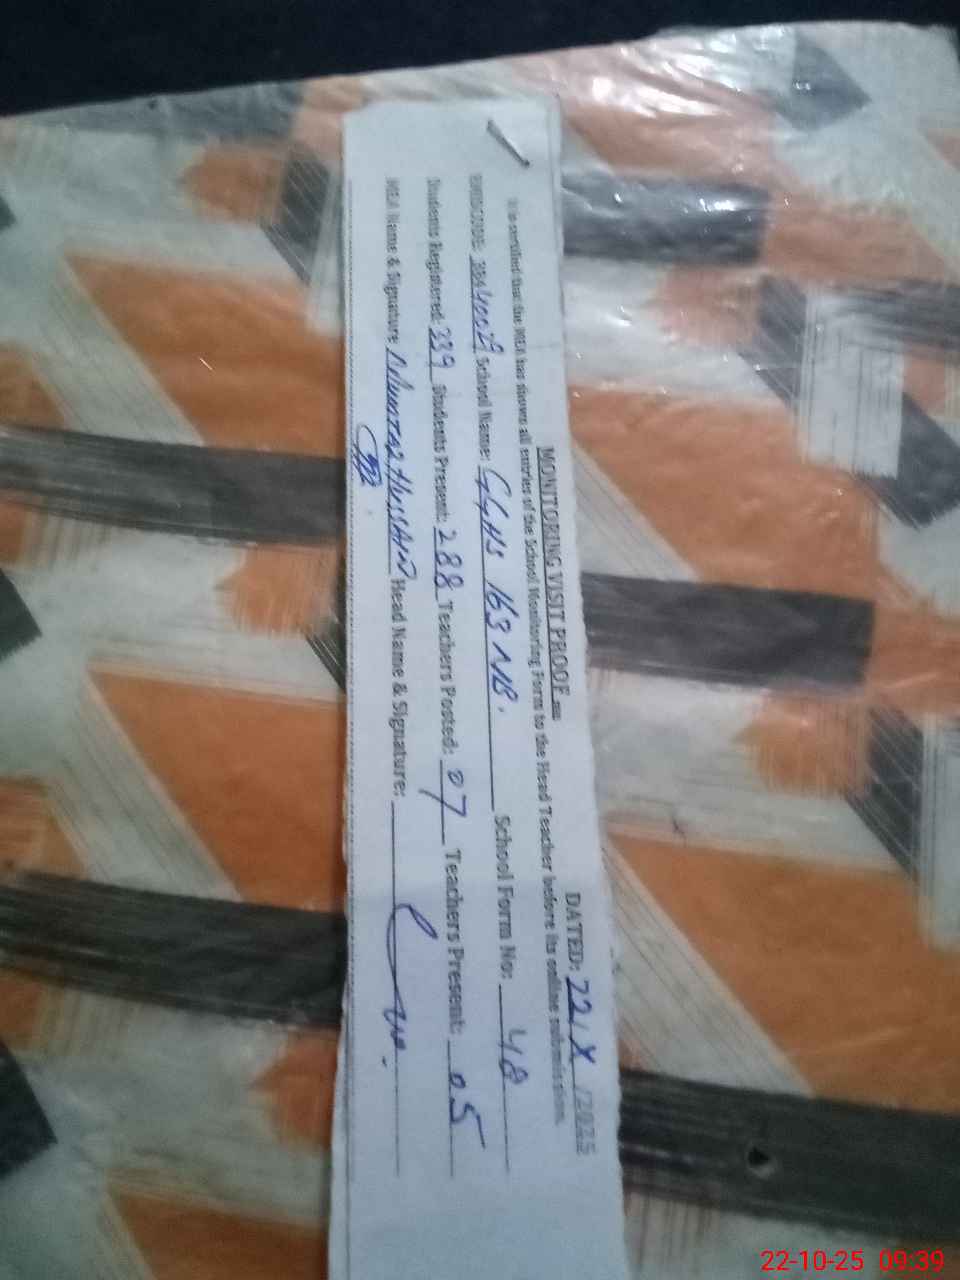 MONITORING VISIT PROOF
DATED: 22/X/2025
It is certified that the MEA has shown all entries of the School Monitoring Form to the Head Teacher before its online submission.
EMISCODE: School Name: GGHS 163 NB. School Form No: 48
Students Registered: 339 Students Present: 288 Teachers Posted: 07 Teachers Present: 05
MEA Name & Signature Mumtaz Hussain Head Name & Signature:
22-10-25 09:39